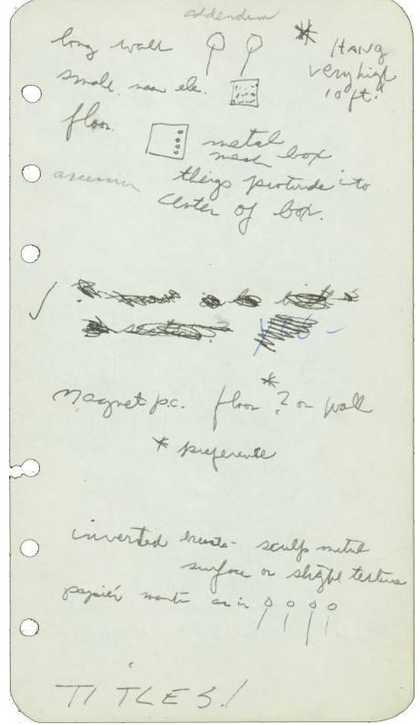 addendum
long wall
* Hang
very high
10 ft.
small near ele.
floor
metal
mesh box
accession things protrude into
center of box.
magnet pc. floor *? or wall
* preference
inverted breasts - sculp metal
surface or slight texture
papier mache as in
TITLES!